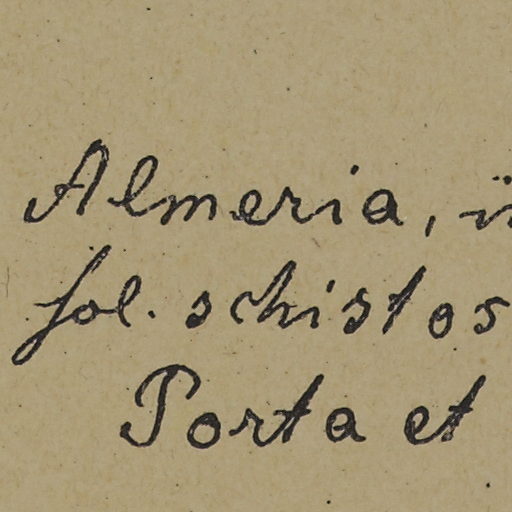 Almeria, in
sol. schistos
Porta et